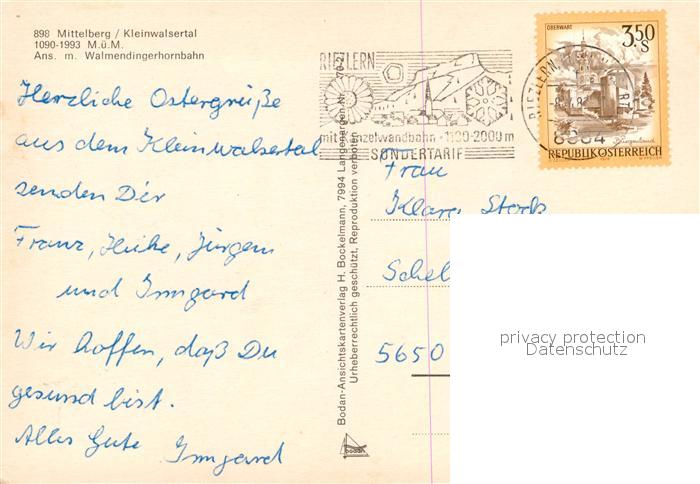 898 Mittelberg / Kleinwalsertal
1090-1993 M.ü.M.
Ans. m. Walmendingerhornbahn
Herzliche Ostergrüße
aus dem Kleinwalsertal
senden Dir
Franz, Heike, Jürgen
und Irmgard
Wir hoffen, daß Du
gesund bist.
Alles Gute Irmgard
Bodan-Ansichtskartenverlag H. Bockelmann, 7994 Langenargen
Urheberrechtlich geschützt, Reproduktion verboten
bodan
RIEZLERN
mit Kanzelwandbahn 1100-2000 m
SONDERTARIF
RIEZLERN
OBERWART
3,50
S
REPUBLIK ÖSTERREICH
Frau
Klara Stork
Schel
5650
privacy protection
Datenschutz